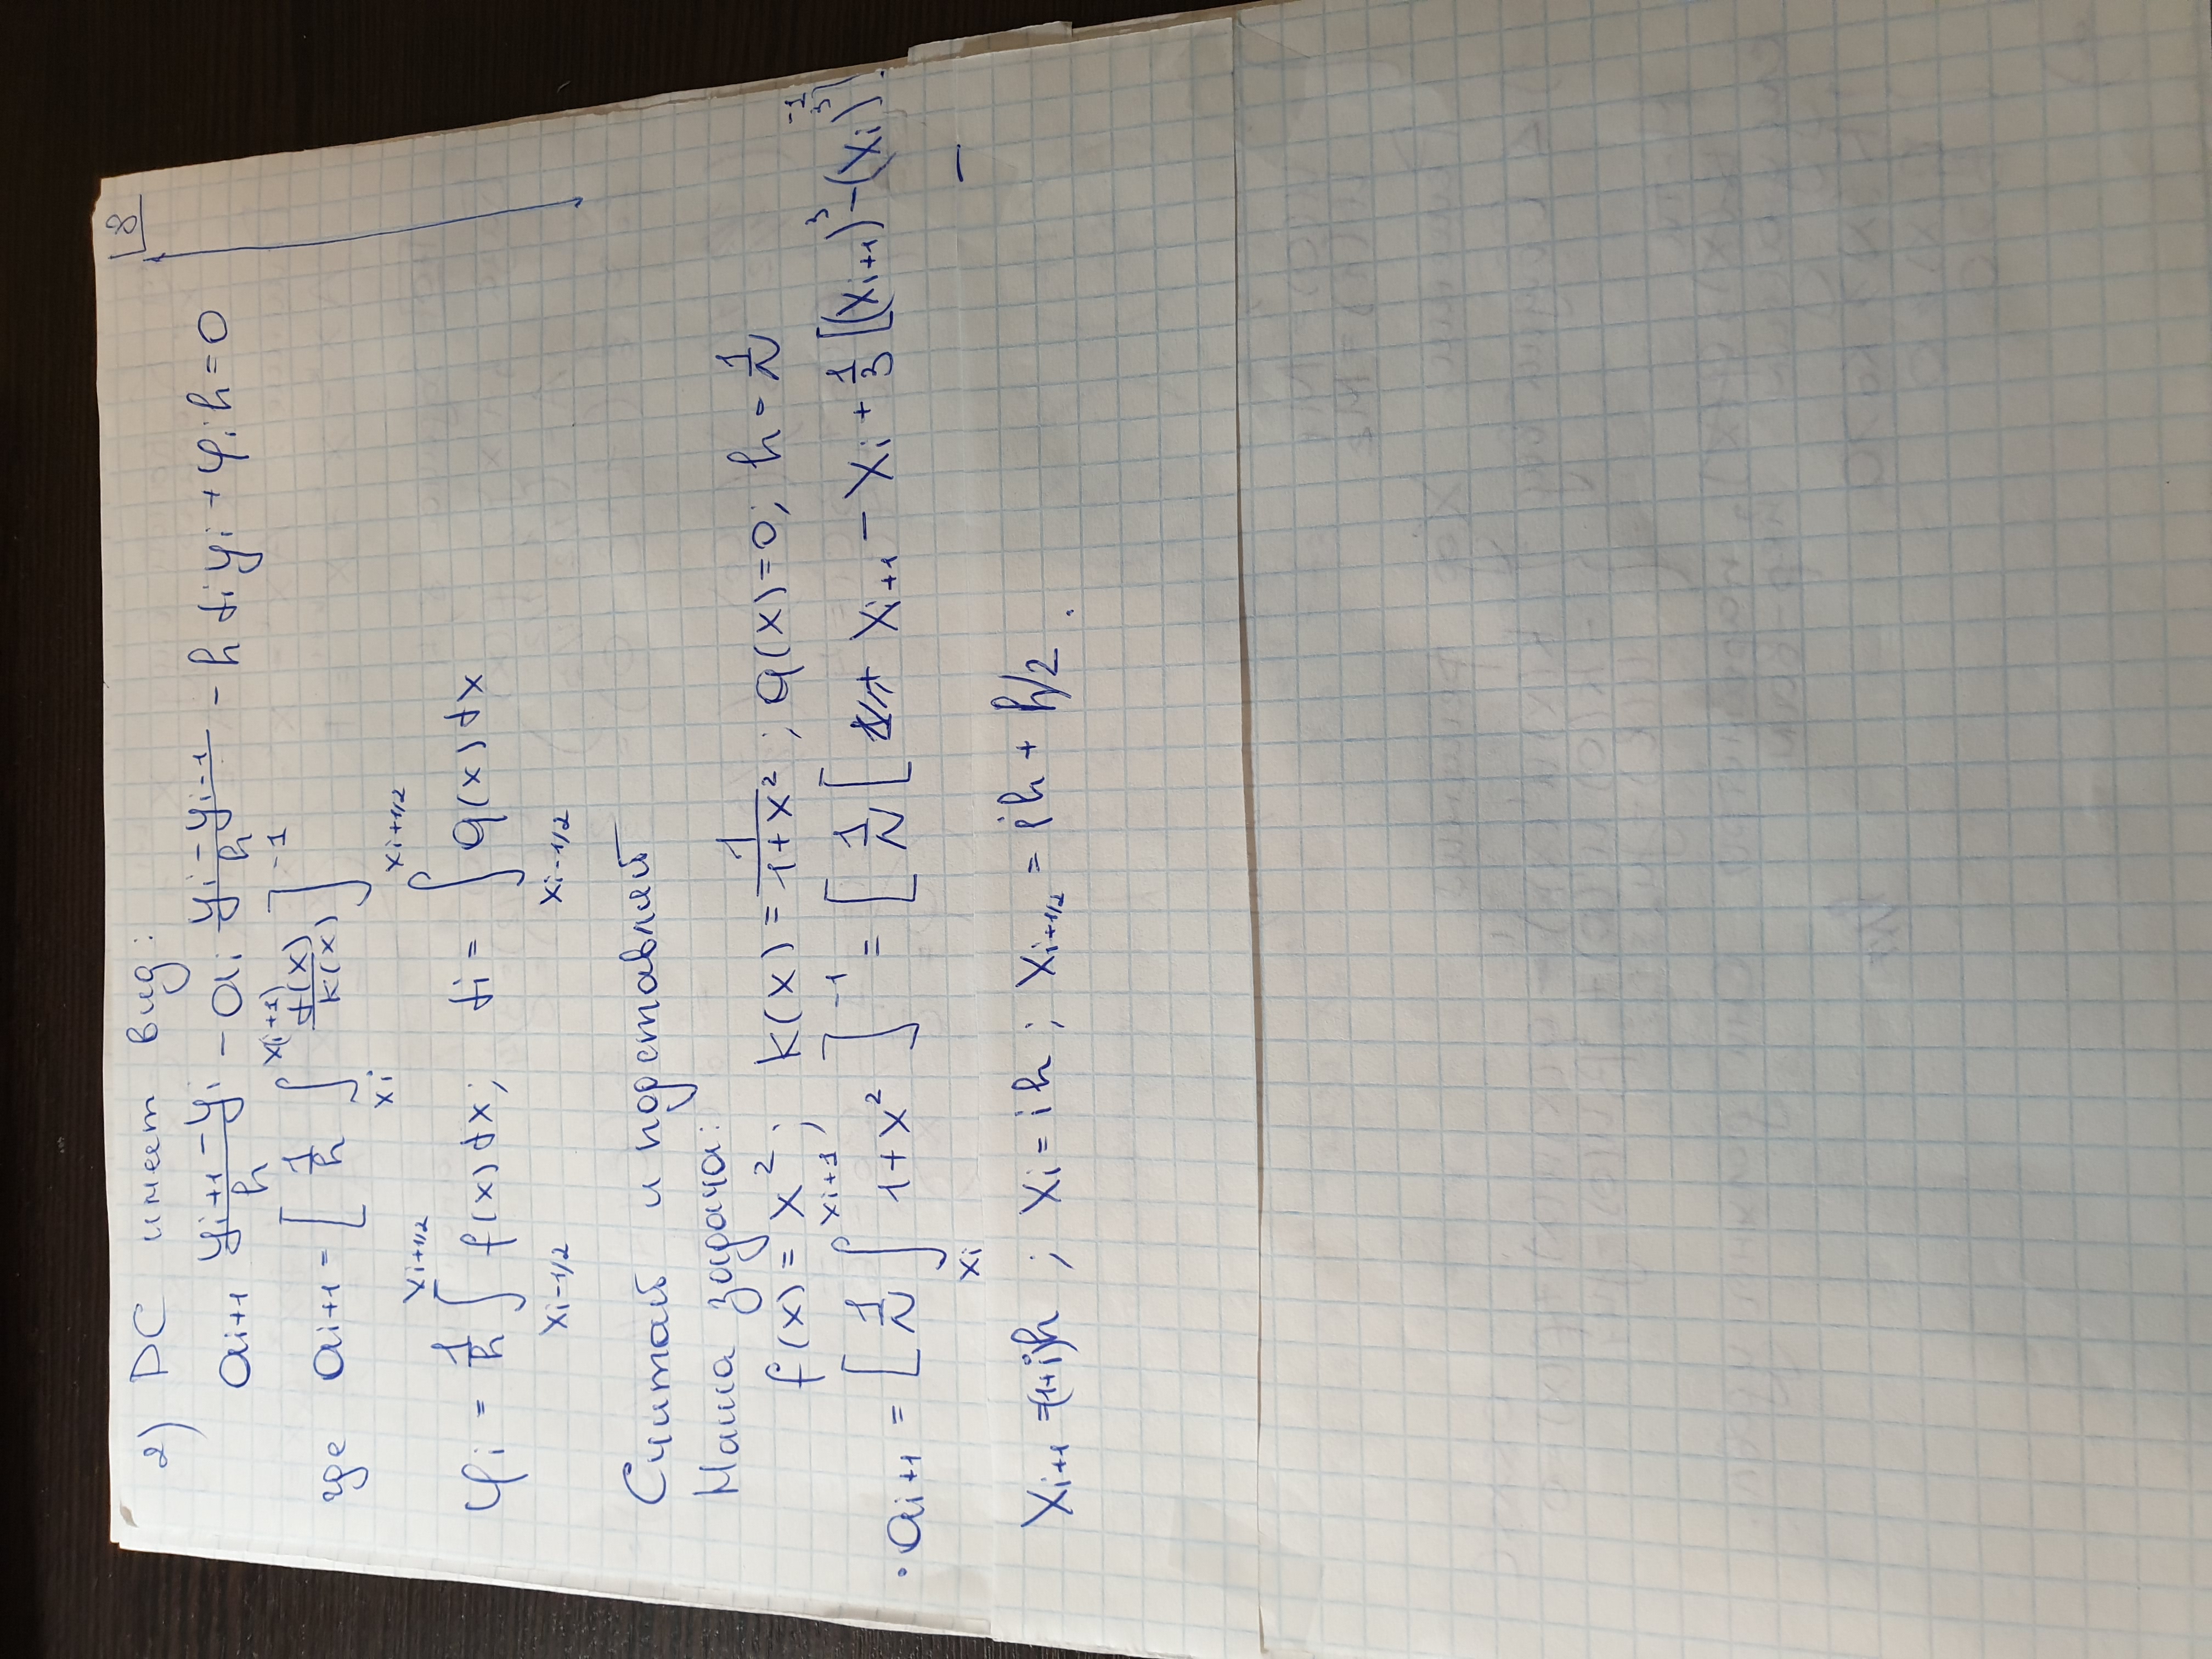 8
2) РС имеет вид:
a_{i+1} \frac{y_{i+1} - y_i}{h} - a_i \frac{y_i - y_{i-1}}{h} - h d_i y_i + φ_i h = 0
где a_{i+1} = [ \frac{1}{h} ∫_{x_i}^{x_{i+1}} \frac{d(x)}{k(x)} ]^{-1}
φ_i = \frac{1}{h} ∫_{x_{i-1/2}}^{x_{i+1/2}} f(x) dx; d_i = ∫_{x_{i-1/2}}^{x_{i+1/2}} q(x) dx
Считай и подставляй
Наша задача:
f(x) = x^2; k(x) = \frac{1}{1+x^2}; q(x) = 0; h = \frac{1}{N}
· a_{i+1} = [ \frac{1}{N} ∫_{x_i}^{x_{i+1}} 1+x^2 ]^{-1} = [ \frac{1}{N} [ x_{i+1} - x_i + \frac{1}{3} [(x_{i+1})^3 - (x_i)^3] ^{-1}.
x_{i+1} = (1+i)h ; x_i = ih ; x_{i+1/2} = ih + h/2 .